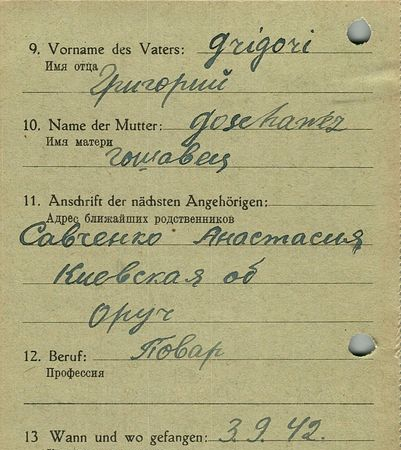 9. Vorname des Vaters: grigori
Имя отца
Григорий
10. Name der Mutter: goschawez
Имя матери
гошавец
11. Anschrift der nächsten Angehörigen:
Адрес ближайших родственников
Савченко Анастасия
Киевская об
Оруч
12. Beruf: Повар
Профессия
13 Wann und wo gefangen: 3.9.42.